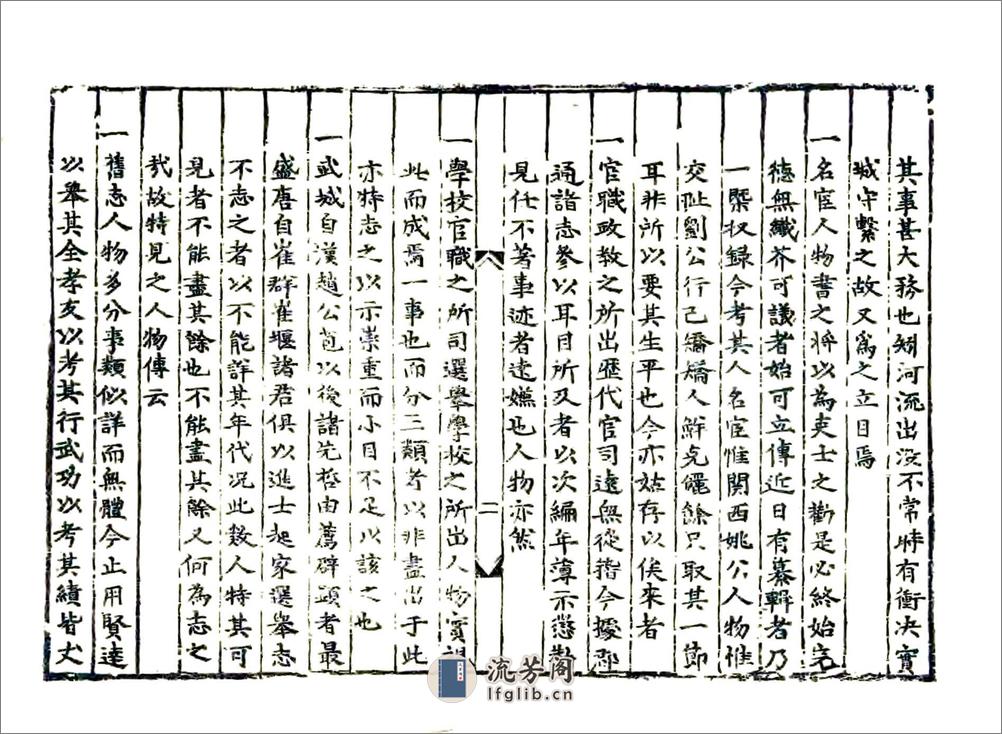 其事甚大務也矧河流出没不常時有衝决實
城守繫之故又為之立目焉
一名宦人物書之將以為吏士之勸是必終始完
徳無纎芥可議者始可立傳近日有纂輯者乃
一槩収録今考其人名宦惟関西姚公人物惟
交趾劉公行己矯矯人鮮克繩餘只取其一節
耳非所以要其生平也今亦姑存以俟來者
一官職政教之所出歷代官司遠無從稽今據郡
通諸志參以耳目所及者以次編年導示懲勸
見任不著事迹者遠嫌也人物亦然
二
一學校官職之所司選舉學校之所出人物實
此而成焉一事也而分三類者以非盡出于此
亦特志之以示崇重而小目不足以該之也
一武城自漢趙公苞以後諸先哲由薦辟顕者最
盛唐自崔群崔堰諸君俱以進士起家選舉志
不志之者以不能詳其年代况此数人特其可
見者不能盡其餘也不能盡其餘又何為志之
㢤故特見之人物傳云
一舊志人物多分事類似詳而無體今止用賢達
以舉其全孝友以考其行武功以考其績皆丈
流芳阁
lfglib.cn